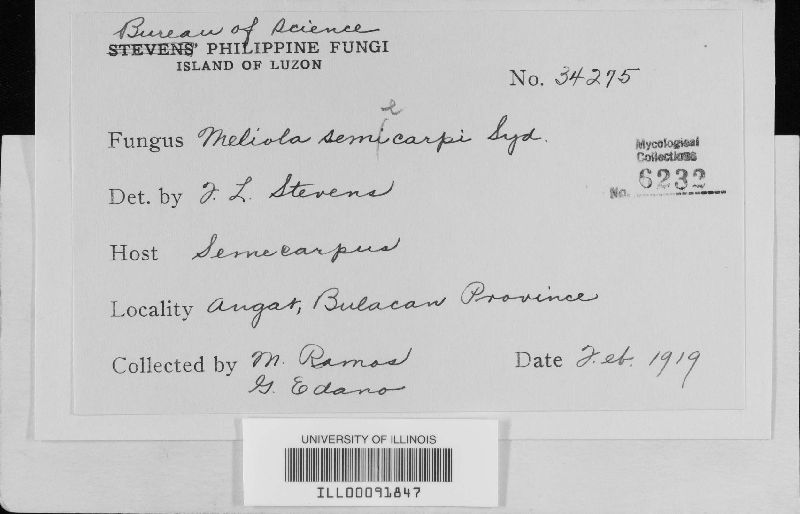 Bureau of Science
STEVENS' PHILIPPINE FUNGI
ISLAND OF LUZON
No. 34275
e
Fungus Meliola semicarpi Syd.
Mycological
Collections
No. 6232
Det. by F. L. Stevens
Host Semecarpus
Locality Angat, Bulacan Province
Collected by M. Ramos
G. Edano
Date Feb. 1919
UNIVERSITY OF ILLINOIS
ILL00091847